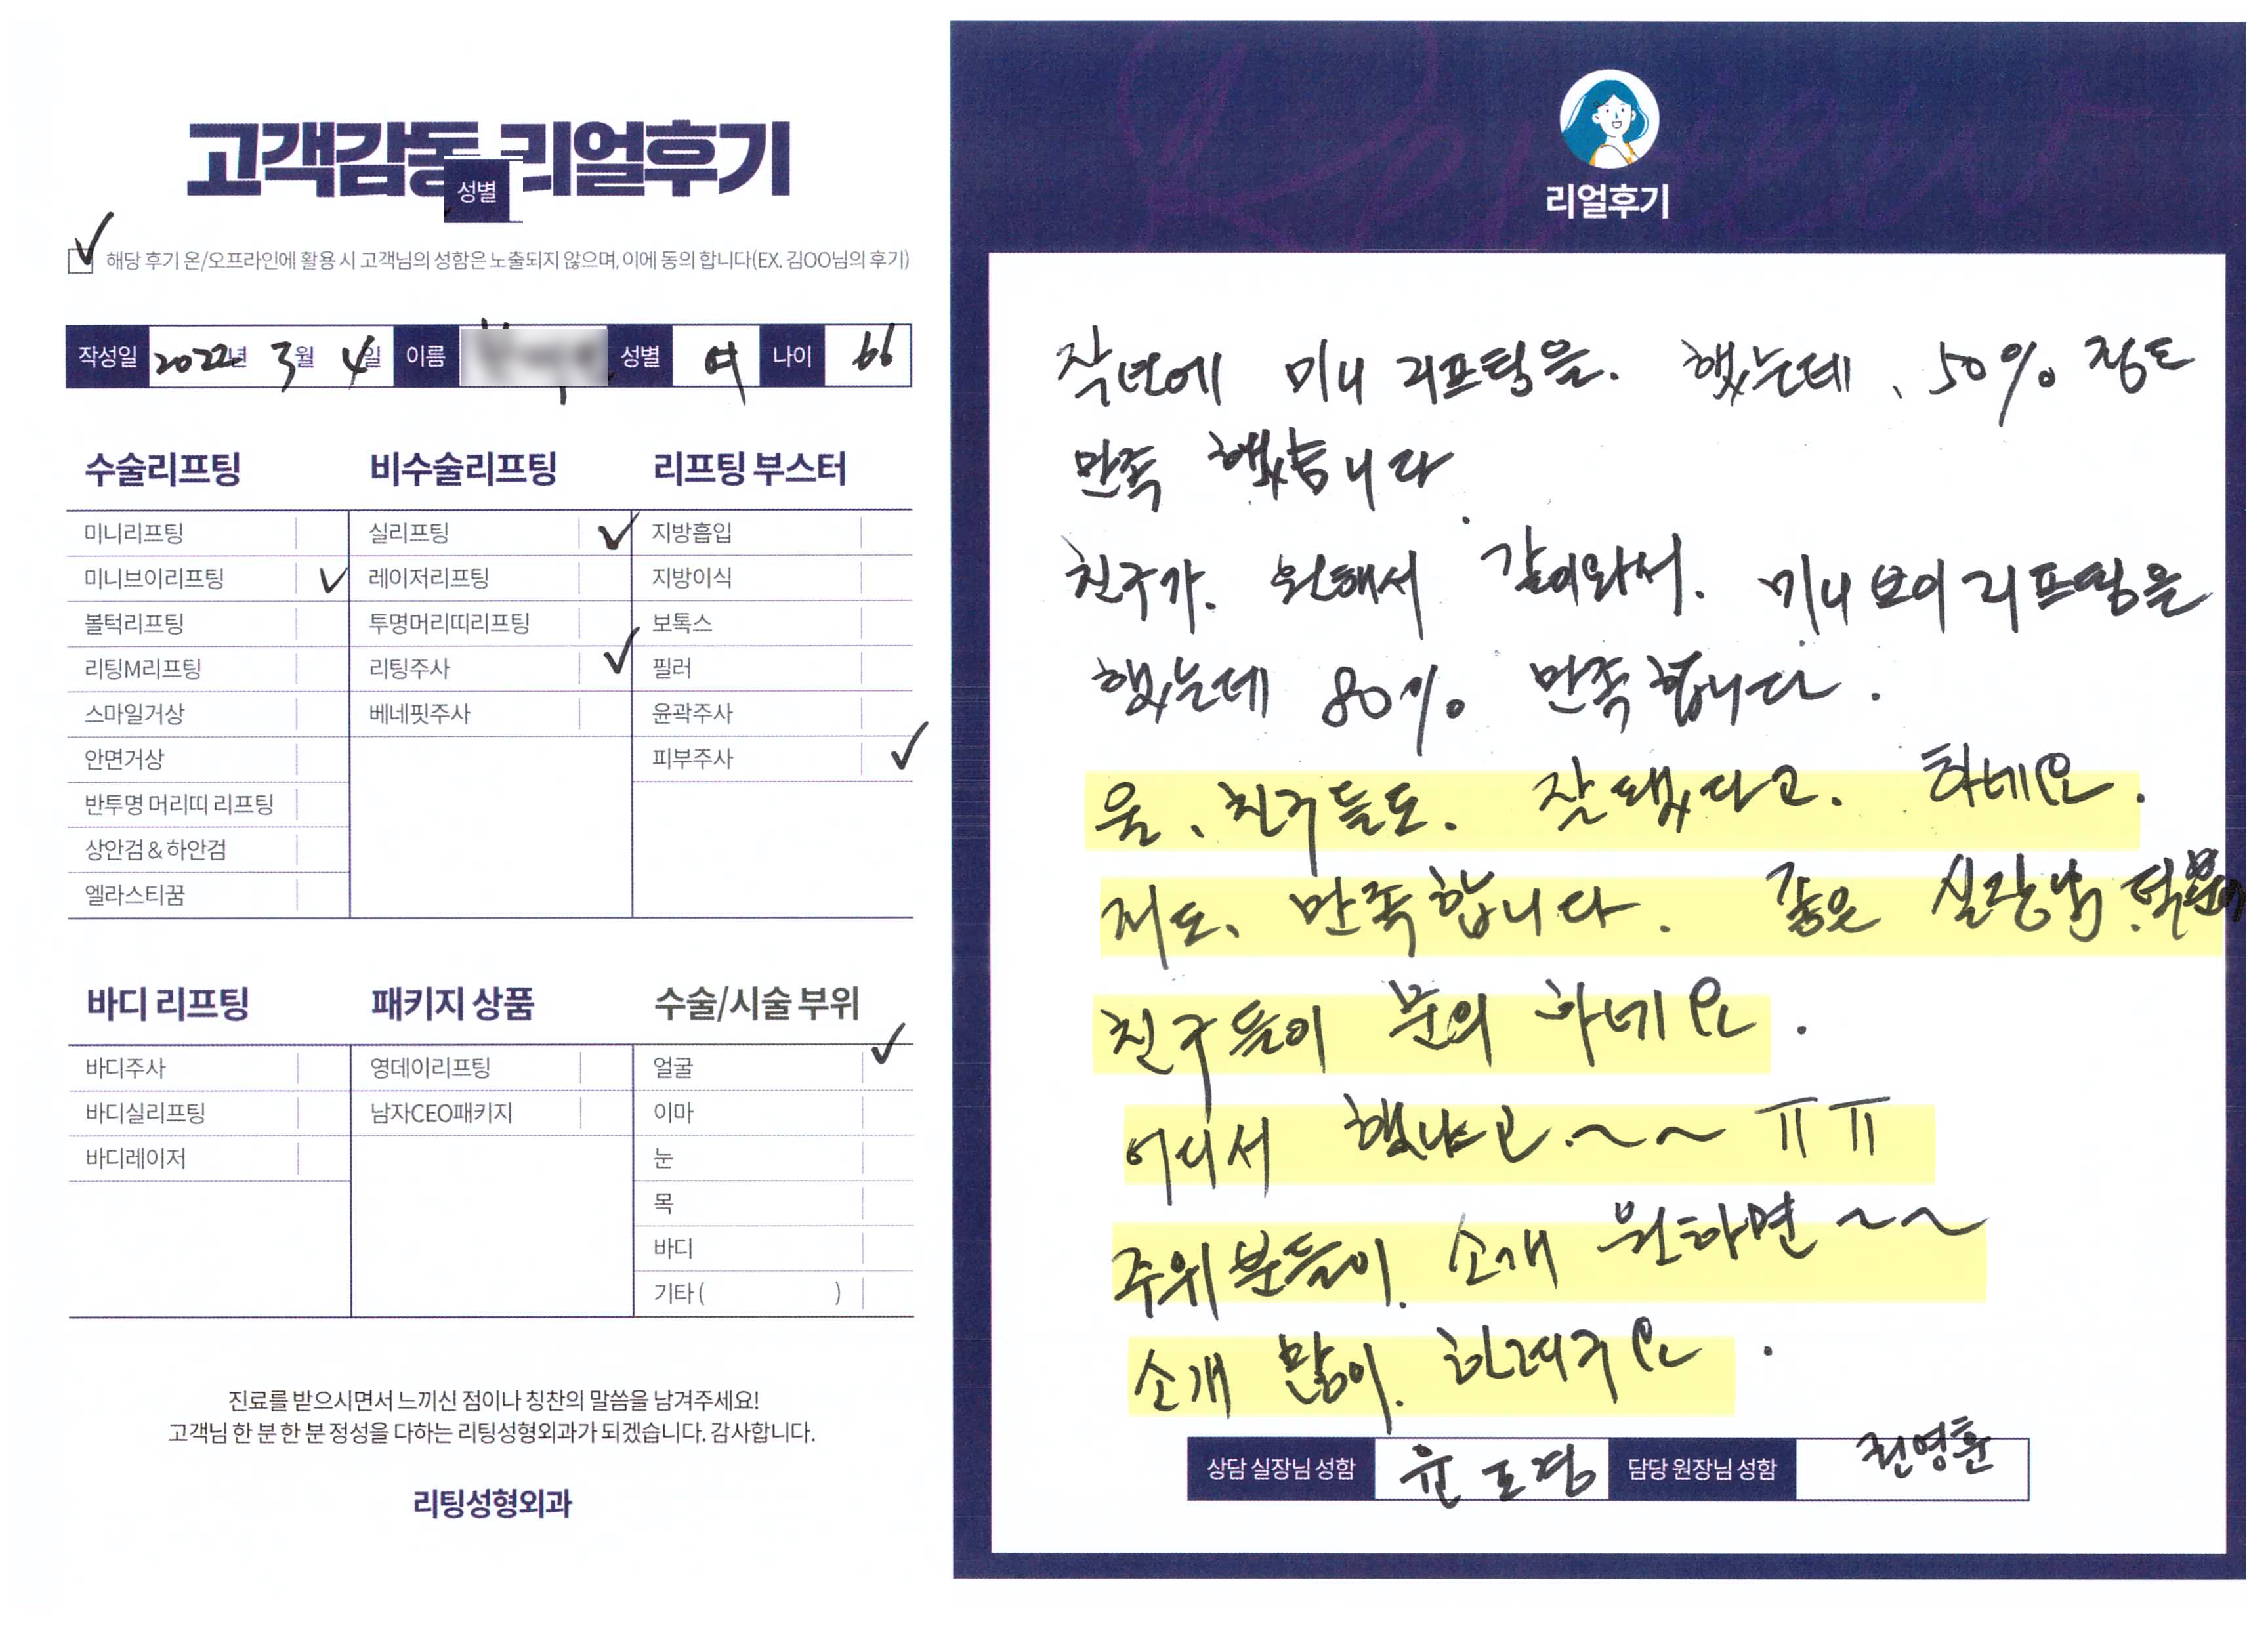 고객감동 리얼후기
성별
해당 후기 온/오프라인에 활용 시 고객님의 성함은 노출되지 않으며, 이에 동의 합니다(EX. 김OO님의 후기)
작성일 2022년 3월 4일 이름 성별 여 나이 66
수술리프팅
미니리프팅
미니브이리프팅 ✓
볼턱리프팅
리팅M리프팅
스마일거상
안면거상
반투명 머리띠 리프팅
상안검 & 하안검
엘라스티꿈
비수술리프팅
실리프팅 ✓
레이저리프팅
투명머리띠리프팅
리팅주사 ✓
베네핏주사
리프팅 부스터
지방흡입
지방이식
보톡스
필러
윤곽주사
피부주사 ✓
바디 리프팅
바디주사
바디실리프팅
바디레이저
패키지 상품
영데이리프팅
남자CEO패키지
수술/시술 부위
얼굴 ✓
이마
눈
목
바디
기타 ( )
진료를 받으시면서 느끼신 점이나 칭찬의 말씀을 남겨주세요!
고객님 한 분 한 분 정성을 다하는 리팅성형외과가 되겠습니다. 감사합니다.
리팅성형외과
리얼후기
작년에 미니 리프팅을. 했는데, 50% 정도
만족 했습니다.
친구가. 원해서 같이와서. 미니브이 리프팅을
했는데 80% 만족합니다.
울, 친구들도. 잘됐다고. 하네요.
저도, 만족합니다. 좋은 실장님.
친구들이 문의 하네요.
어디서 했냐고.~~ ㅠㅠ
주위분들이. 소개 원하면 ~~
소개 많이. 하려구요.
상담 실장님 성함 윤도경 담당 원장님 성함 권영훈